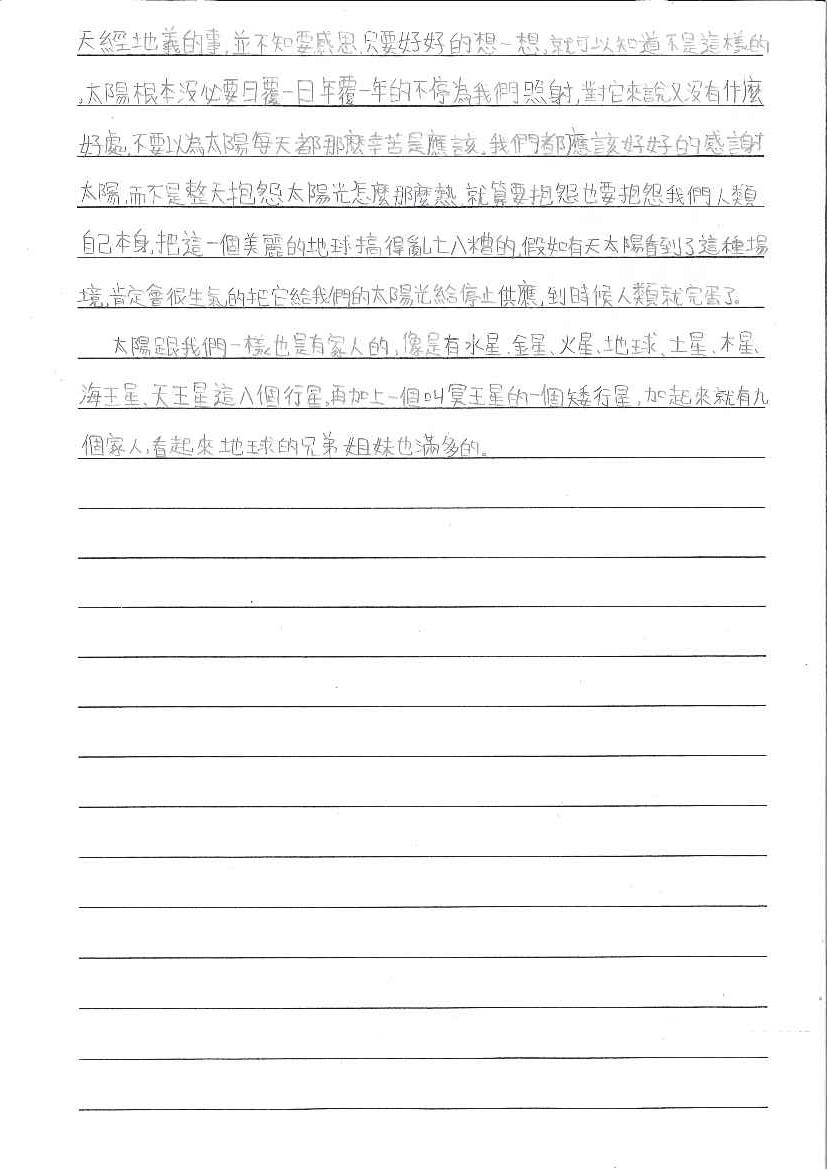 天經地義的事,並不知要感恩,只要好好的想一想,就可以知道不是這樣的
,太陽根本沒必要日覆一日年覆一年的不停為我們照射,對它來說又沒有什麼
好處,不要以為太陽每天都那麼幸苦是應該。我們都應該好好的感謝
太陽,而不是整天抱怨太陽光怎麼那麼熱,就算要抱怨也要抱怨我們人類
自己本身,把這一個美麗的地球搞得亂七八糟的,假如有天太陽看到了這種場
境,肯定會很生氣的把它給我們的太陽光給停止供應,到時候人類就完蛋了。
太陽跟我們一樣也是有家人的,像是有水星、金星、火星、地球、土星、木星、
海王星、天王星這八個行星,再加上一個叫冥王星的一個矮行星,加起來就有九
個家人,看起來地球的兄弟姐妹也滿多的。